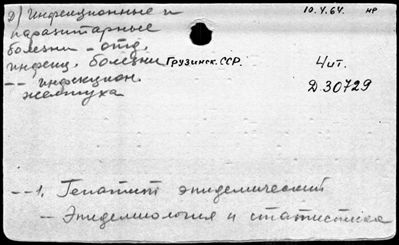 2) Инфекционные и
паразитарные
болезни - отд.
инфекц. болезни Грузинск. ССР.
-- инфекцион.
желтуха
10.V.64. нр
4 ит.
Д 30729
--1. Гепатит эпидемический
- Эпидемиология и статистика